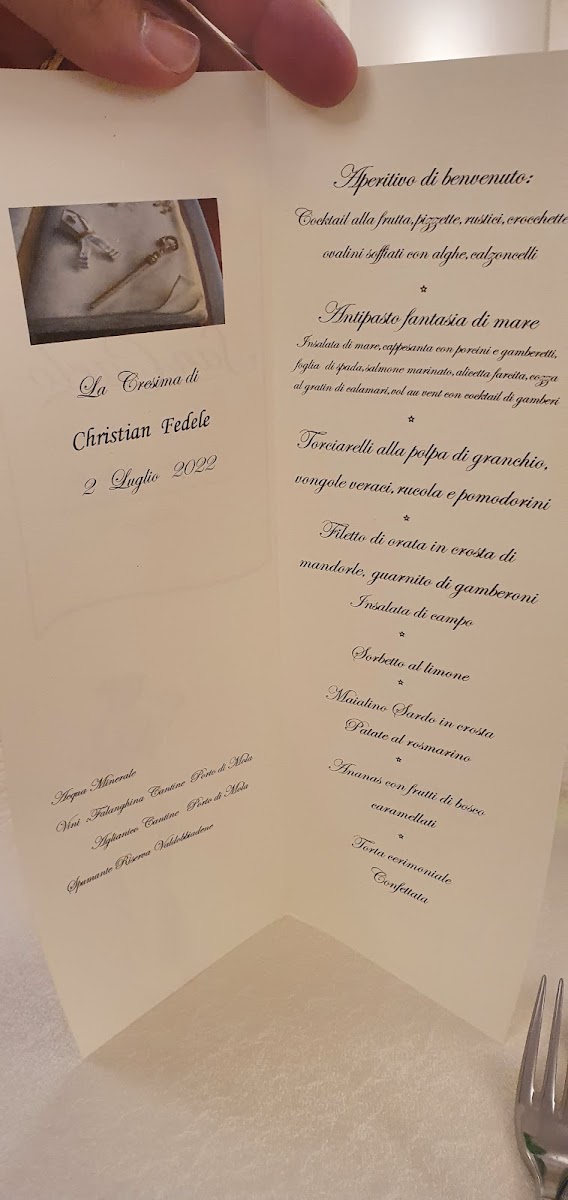 La Cresima di
Christian Fedele
2 Luglio 2022
Acqua Minerale
Vini :Falanghina Cantine Porto di Mola
Aglianico Cantine Porto di Mola
Spumante Riserva Valdobbiadene
Aperitivo di benvenuto:
Cocktail alla frutta,pizzette,rustici,crocchette
ovalini soffiati con alghe,calzoncelli
Antipasto fantasia di mare
Insalata di mare,cappesanta con porcini e gamberetti,
foglia di spada,salmone marinato,alicetta farcita,cozza
al gratin di calamari,vol au vent con cocktail di gamberi
Torciarelli alla polpa di granchio,
vongole veraci,rucola e pomodorini
Filetto di orata in crosta di
mandorle, guarnito di gamberoni
Insalata di campo
Sorbetto al limone
Maialino Sardo in crosta
Patate al rosmarino
Ananas con frutti di bosco
caramellati
Torta cerimoniale
Confettata